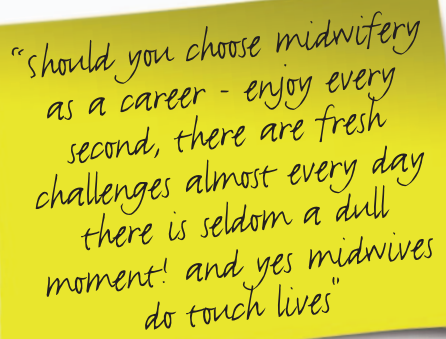 “should you choose midwifery
as a career - enjoy every
second, there are fresh
challenges almost every day
there is seldom a dull
moment! and yes midwives
do touch lives”